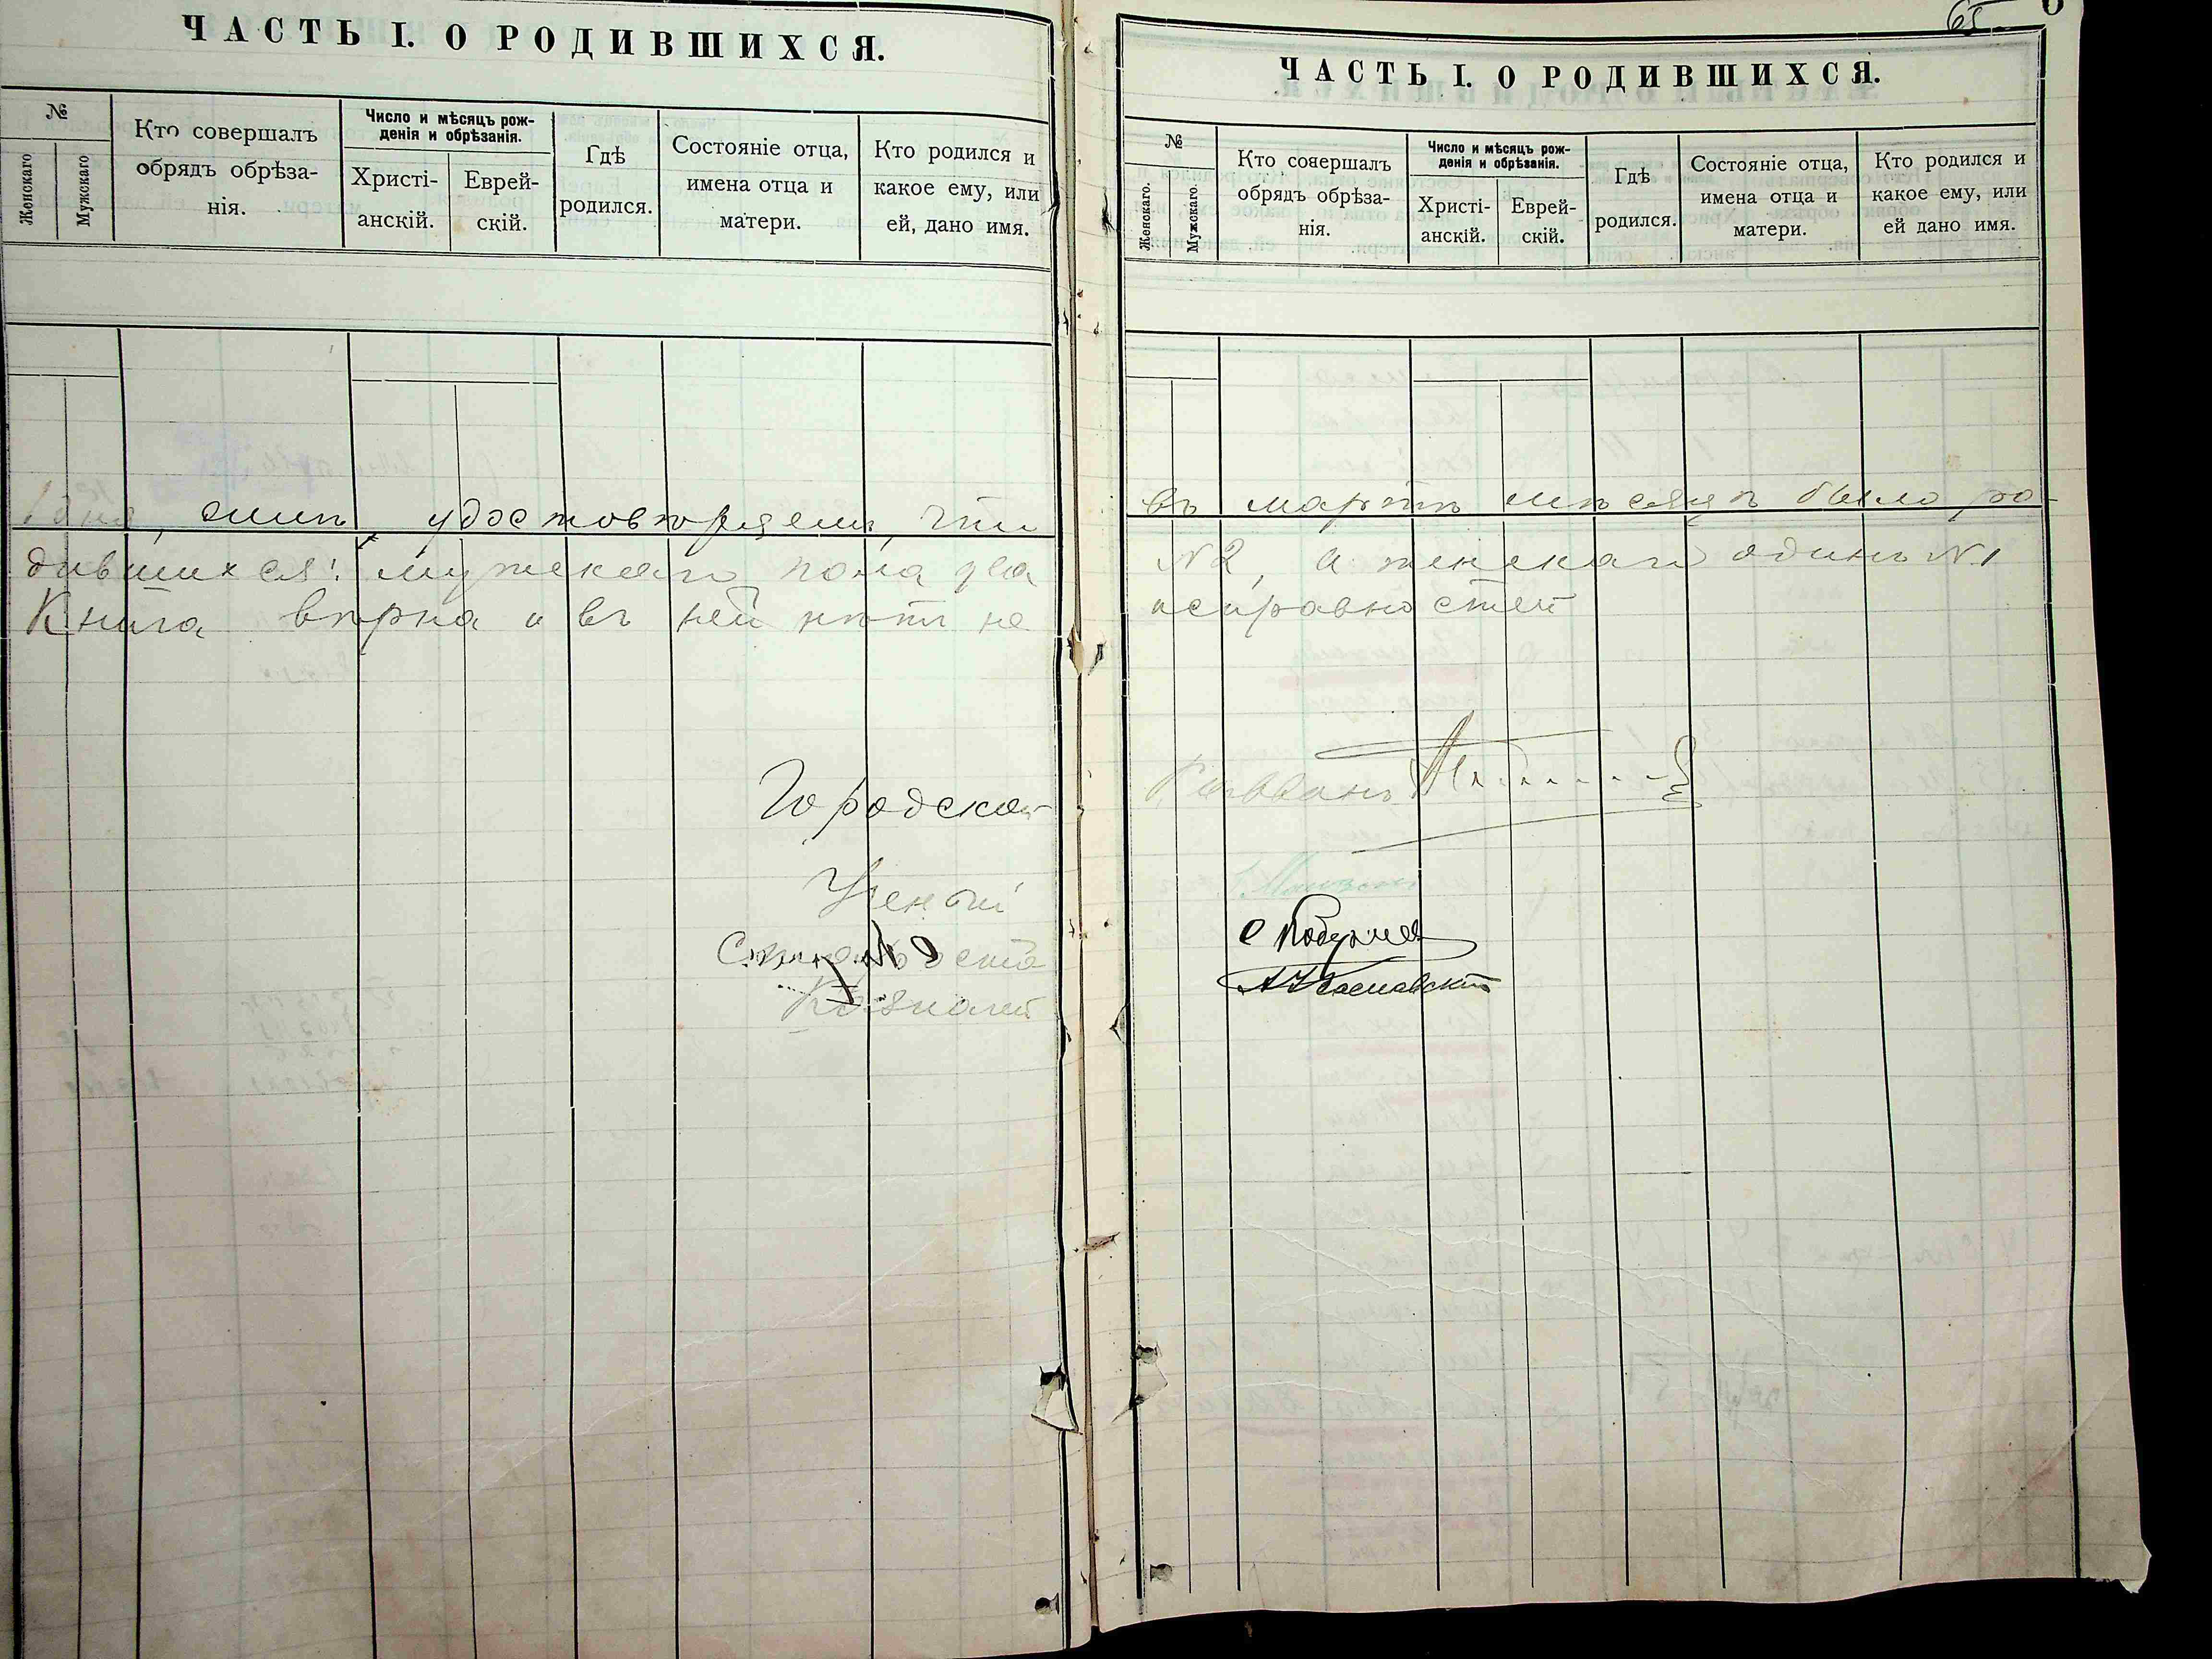 ЧАСТЬ I. О РОДИВШИХСЯ.
№
Женскаго
Мужскаго
Кто совершалъ
обрядъ обрѣза-
нія.
Число и мѣсяцъ рож-
денія и обрѣзанія.
Христі-
анскій.
Еврей-
скій.
Гдѣ
родился.
Состояніе отца,
имена отца и
матери.
Кто родился и
какое ему, или
ей, дано имя.
симъ удостовѣряемъ, что
дившихся: мужскаго пола два
Книга вѣрна и въ ней нѣтъ не
Городской
Ученый
Староста
Казначей
65
ЧАСТЬ I. О РОДИВШИХСЯ.
№
Женскаго.
Мужскаго.
Кто совершалъ
обрядъ обрѣза-
нія.
Число и мѣсяцъ рож-
денія и обрѣзанія.
Христі-
анскій.
Еврей-
скій.
Гдѣ
родился.
Состояніе отца,
имена отца и
матери.
Кто родился и
какое ему, или
ей дано имя.
въ мартѣ мѣсяцѣ было ро-
№2, а женскаго одинъ №1
исправностей
Раввинъ